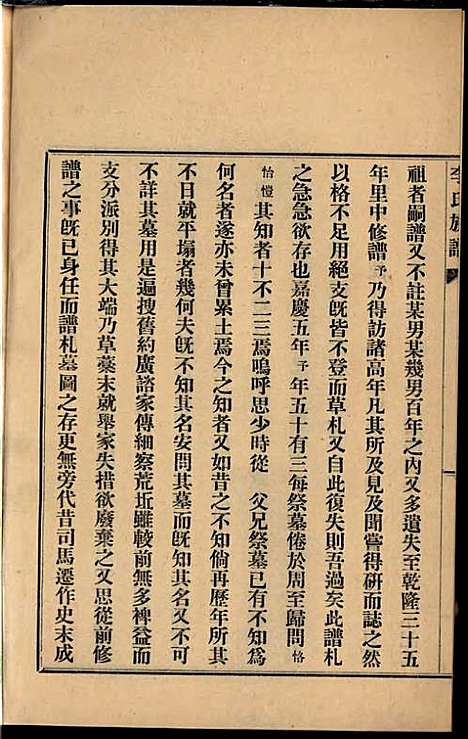 李氏族譜
祖者嗣譜又不註某男某幾男百年之內又多遺失至乾隆三十五
年里中修譜予乃得訪諸高年凡其所及見及聞嘗得研而誌之然
以格不足用絕支既皆不登而草札又自此復失則吾過矣此譜札
之急急欲存也嘉慶五年予年五十有三每祭墓倦於周至歸問恪
怡愷其知者十不二三焉嗚呼思少時從 父兄祭墓已有不知為
何名者遂亦未曾累土焉今之知者又如昔之不知倘再歷年所其
不日就平塌者幾何夫既不知其名安問其墓既不知其墓又不可
不詳其墓用是遍搜舊約廣諮家傳細察荒坵雖較前無多裨益而
支分派別得其大端乃草藁末就舉家失措欲廢棄之又思從前修
譜之事既已身任而譜札墓圖之存更無旁代昔司馬遷作史末成